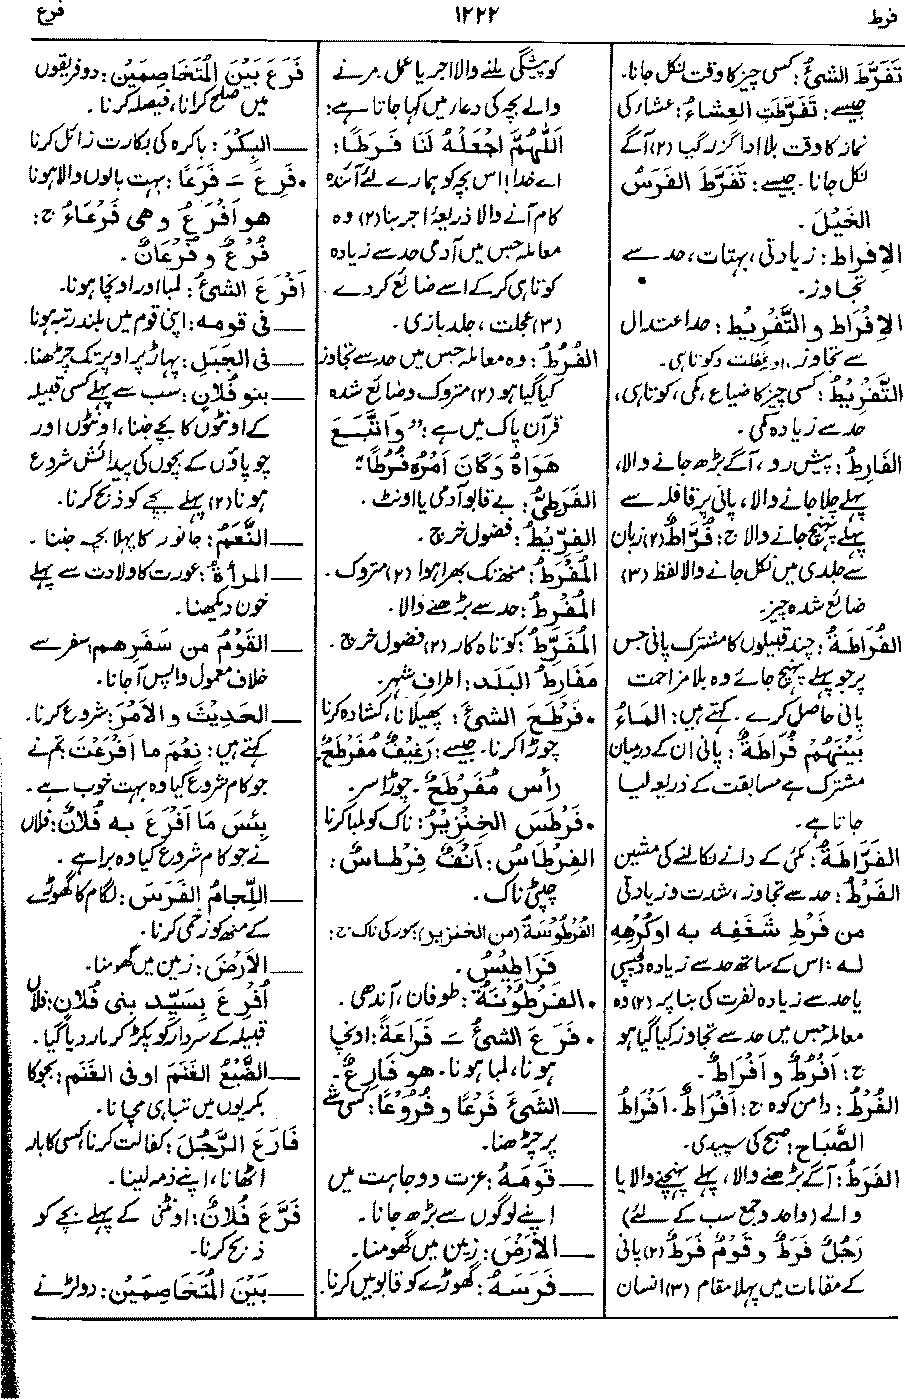 فرط
۱۲۲۲
فرع
تَفَرَّطَ الشیْءُ: کسی چیز کا وقت نکل جانا۔
جیسے: تَفَرَّطَتِ العِشَاءُ: عشاء کی
نماز کا وقت بلا ادا گزر گیا (۲) آگے
نکل جانا۔ جیسے: تَفَرَّطَ الفَرَسُ
الخَیْلَ۔
الإفراط: زیادتی، بہتات، حد سے
تجاوز۔
الإفْرَاط و التَّفْرِيط: حد اعتدال
سے تجاوز، اور غفلت و کوتاہی۔
التَّفْرِيْطُ: کسی چیز کا ضیاع، کمی، کوتاہی،
حد سے زیادہ کمی۔
الفَارِطُ: پیش رو، آگے بڑھ جانے والا،
پہلے چلا جانے والا، پانی پر قافلہ سے
پہلے پہنچ جانے والا ج: فُرَّاطٌ (۲) زبان
سے جلدی میں نکل جانے والا لفظ (۳)
ضائع شدہ چیز۔
الفُرَاطَةُ: چند قبیلوں کا مشترک پانی جس
پر جو پہلے پہنچ جائے وہ بلا مزاحمت
پانی حاصل کرے۔ کہتے ہیں: المَاءُ
بَيْنَهُمْ فُرَاطَةٌ: پانی ان کے درمیان
مشترک ہے مسابقت کے ذریعہ لیا
جاتا ہے۔
الفَرَّاطَةُ: مکئی کے دانے نکالنے کی مشین
الفَرْطُ: حد سے تجاوز، شدت و زیادتی
من فَرْطِ شَغَفِه به أو كُرْهِهِ
لـه: اس کے ساتھ حد سے زیادہ دلچسپی
یا حد سے زیادہ نفرت کی بنا پر (۲) وہ
معاملہ جس میں حد سے تجاوز کیا گیا ہو
ج: أَفْرُطٌ و أَفْرَاطٌ۔
الفُرْطُ: دامن کوہ ج: أَفْرَاطٌ۔ أَفْرَاطُ
الصَّبَاحِ: صبح کی سپیدی۔
الفَرَطُ: آگے بڑھنے والا، پہلے پہنچنے والا یا
والے (واحد و جمع سب کے لئے)
رَجُلٌ فَرَطٌ و قَوْمٌ فَرَطٌ (۲) پانی
کے مقامات میں پہلا مقام (۳) انسان
کو پیشگی ملنے والا اجر یا عمل، مرنے
والے بچہ کی دعاء میں کہا جاتا ہے:
اَللّٰهُمَّ اجْعَلْهُ لَنَا فَرَطًا:
اے خدا! اس بچہ کو ہمارے لئے آئندہ
کام آنے والا ذریعۂ اجر بنا (۲) وہ
معاملہ جس میں آدمی حد سے زیادہ
کوتاہی کرکے اسے ضائع کر دے
(۳) عجلت، جلد بازی۔
الفُرُطُ: وہ معاملہ جس میں حد سے تجاوز
کیا گیا ہو (۲) متروک و ضائع شدہ
قرآن پاک میں ہے: "وَ اتَّبَعَ
هَوَاهُ وَ كَانَ أَمْرُهُ فُرُطًا"
الفُرُطِيُّ: بے قابو آدمی یا اونٹ۔
الفِرِّيْطُ: فضول خرچ۔
المُفْرَطُ: منھ تک بھرا ہوا (۲) متروک۔
المُفْرِطُ: حد سے بڑھنے والا۔
المُفَرِّطُ: کوتاہ کار (۲) فضول خرچ۔
مَفَارِطُ البَلَدِ: اطراف شہر۔
• فَرْطَحَ الشیْءَ: پھیلانا، کشادہ کرنا
چوڑا کرنا۔ جیسے: رَغِيْفٌ مُفَرْطَحٌ۔
رأس مُفَرْطَحٌ۔ چوڑا سر۔
• فَرْطَسَ الخِنْزِيْرُ: ناک کو لمبا کرنا
الفِرْطَاسُ: أَنْفٌ فِرْطَاسٌ:
چپٹی ناک۔
الفُرْطُوْسَةُ (من الخنزير): سور کی ناک ج:
فَرَاطِيْسُ۔
• الفَرْطُوْنَةُ: طوفان، آندھی۔
• فَرَعَ الشیْءُ ـَ فَرَاعَةً: اونچا
ہونا، لمبا ہونا۔ هو فَارِعٌ۔
— الشیْءَ فَرْعًا و فُرُوْعًا: کسی شے
پر چڑھنا۔
— قَوْمَهُ: عزت و وجاہت میں
اپنے لوگوں سے بڑھ جانا۔
— الأَرْضَ: زمین میں گھومنا۔
— فَرَسَهُ: گھوڑے کو قابو میں کرنا۔
فَرَعَ بَيْنَ المُتَخَاصِمَيْنِ: دو فریقوں
میں صلح کرانا، فیصلہ کرنا۔
— البِكْرَ: باکرہ کی بکارت زائل کرنا
• فَرِعَ ـَ فَرَعًا: بہت بالوں والا ہونا
هو أَفْرَعُ و هي فَرْعَاءُ ج:
فُرْعٌ و فُرْعَانٌ۔
أَفْرَعَ الشیْءُ: لمبا اور اونچا ہونا۔
— فی قومه: اپنی قوم میں بلند رتبہ ہونا
— فی الجَبَلِ: پہاڑ پر اوپر تک چڑھنا۔
— بنو فُلَانٍ: سب سے پہلے کسی قبیلہ
کے اونٹوں کا بچے جننا، اونٹوں اور
چوپاؤں کے بچوں کی پیدائش شروع
ہونا (۲) پہلے بچے کو ذبح کرنا۔
— النَّعَمُ: جانور کا پہلا بچہ جننا۔
— المرأة: عورت کا ولادت سے پہلے
خون دیکھنا۔
— القَوْمُ من سَفَرِهم: سفر سے
خلاف معمول واپس آ جانا۔
— الحَدِيْثَ و الأَمْرَ: شروع کرنا۔
کہتے ہیں: نِعْمَ ما أَفْرَعْتَ تم نے
جو کام شروع کیا وہ بہت خوب ہے۔
بِئْسَ مَا أَفْرَعَ به فُلَانٌ: فلاں
نے جو کام شروع کیا وہ برا ہے۔
— اللِّجَامُ الفَرَسَ: لگام کا گھوڑے
کے منھ کو زخمی کرنا۔
— الأَرْضَ: زمین میں گھومنا۔
أُفْرِعَ بِسَيِّدِ بني فُلَانٍ: فلاں
قبیلہ کے سردار کو پکڑ کر مار دیا گیا۔
— الضَّبُعُ الغَنَمَ أو فی الغَنَمِ: بجو کا
بکریوں میں تباہی مچانا۔
فَارَعَ الرَّجُلَ: کفالت کرنا، کسی کا بار
اٹھانا، اپنے ذمہ لینا۔
فَرَّعَ فُلَانٌ: اونٹنی کے پہلے بچے کو
ذبح کرنا۔
— بَيْنَ المُتَخَاصِمَيْنِ: دو لڑنے